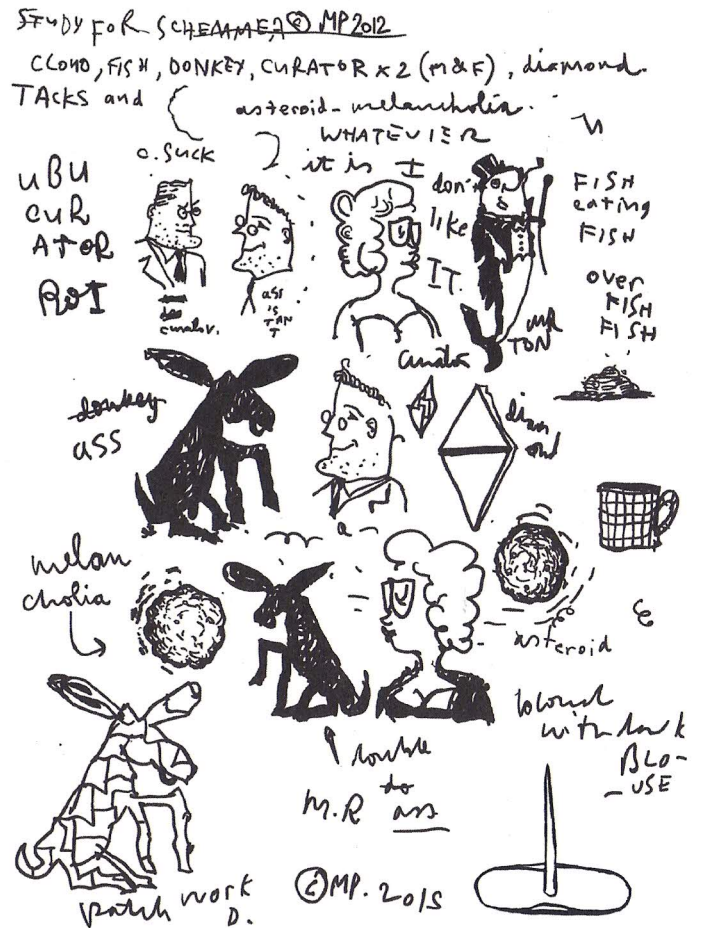 STUDY FOR SCHEMMER © MP 2012
CLOUD, FISH, DONKEY, CURATOR x 2 (M & F), diamond.
TACKS and
asteroid - melancholia.
WHATEVIER
it is I
don't
like
IT.
UBU
CUR
ATOR
ROI
C. SUCK
curator.
ass
IS
TAN
T
curator
MR
TON
FISH
eating
FISH
over
FISH
FISH
donkey
ASS
diam
ond
melan
cholia
asteroid
blond
with dark
BLO-
- USE
double
do
M.R ass
patch work
D.
© MP. 2015